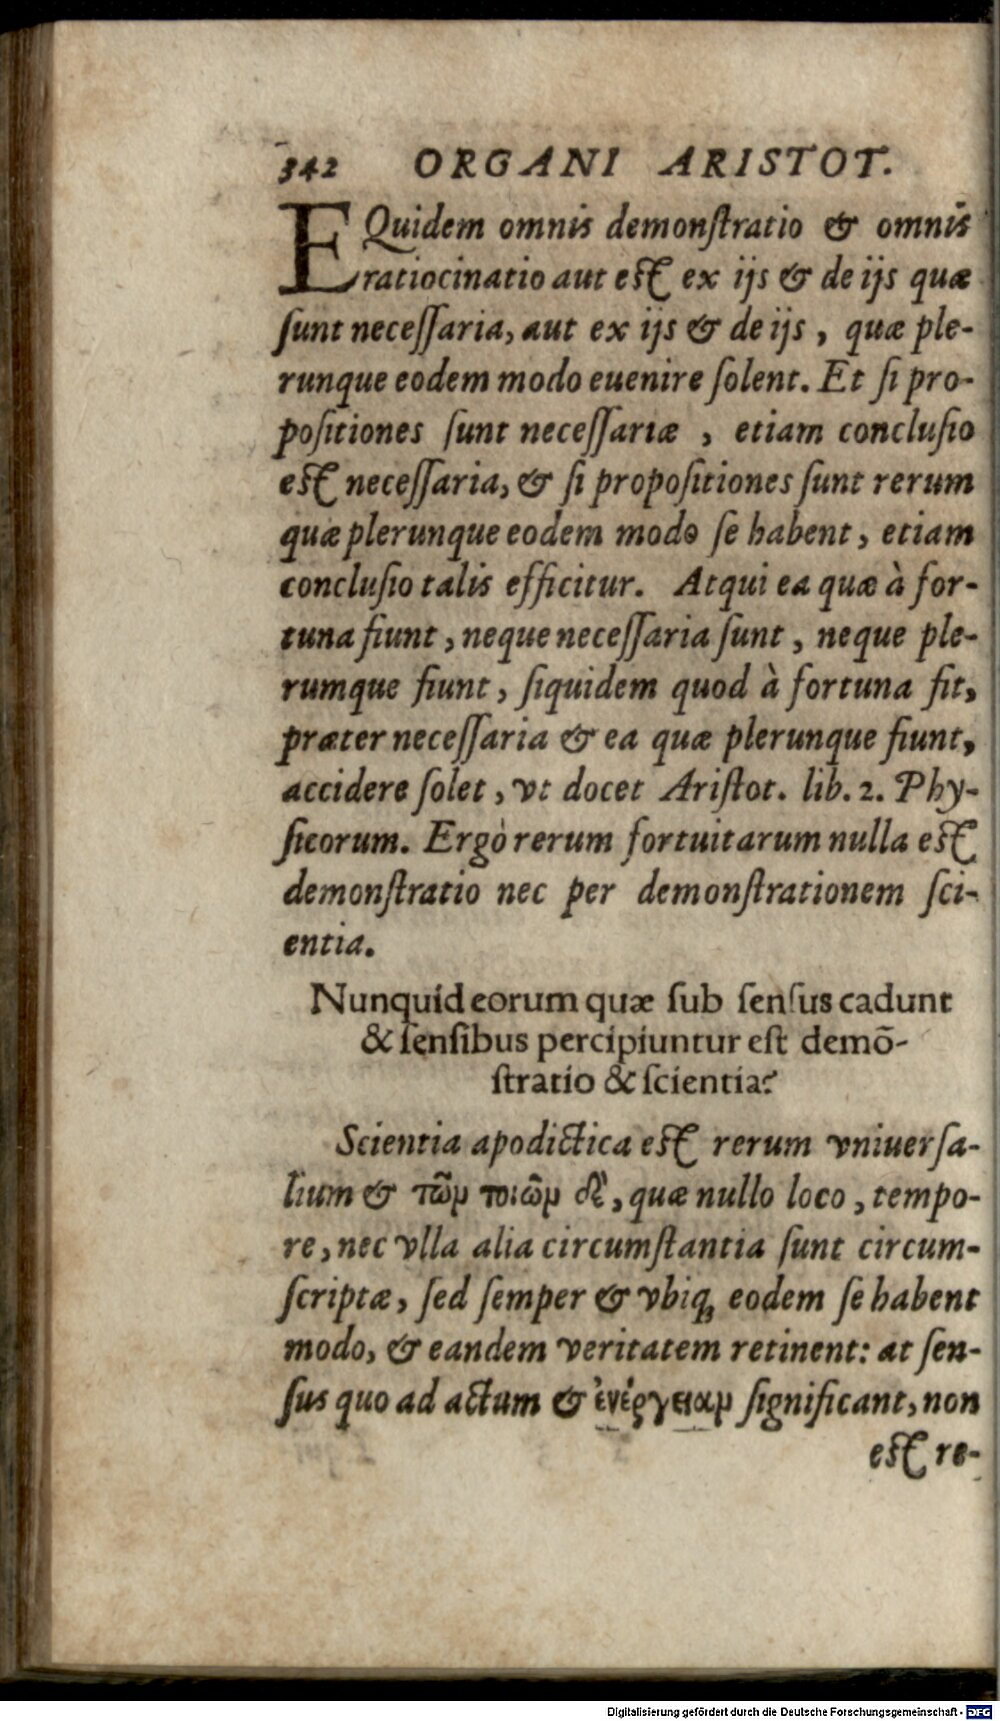 342 ORGANI ARISTOT.
EQuidem omnis demonſtratio & omnis
ratiocinatio aut eſt ex ijs & de ijs quæ
ſunt neceſſaria, aut ex ijs & de ijs, quæ ple-
runque eodem modo euenire ſolent. Et ſi pro-
poſitiones ſunt neceſſariæ, etiam concluſio
eſt neceſſaria, & ſi propoſitiones ſunt rerum
quæ plerunque eodem modo ſe habent, etiam
concluſio talis efficitur. Atqui ea quæ à for-
tuna fiunt, neque neceſſaria ſunt, neque ple-
rumque fiunt, ſiquidem quod à fortuna fit,
præter neceſſaria & ea quæ plerunque fiunt,
accidere ſolet, vt docet Ariſtot. lib. 2. Phy-
ſicorum. Ergò rerum fortuitarum nulla eſt
demonſtratio nec per demonſtrationem ſci-
entia.
Nunquid eorum quæ ſub ſenſus cadunt
& ſenſibus percipiuntur eſt demõ-
ſtratio & ſcientia?
Scientia apodictica eſt rerum vniuerſa-
lium & τῶμ τοιῶμ δὲ, quæ nullo loco, tempo-
re, nec vlla alia circumſtantia ſunt circum-
ſcriptæ, ſed ſemper & vbiq; eodem ſe habent
modo, & eandem veritatem retinent: at ſen-
ſus quo ad actum & ἐνέργειαμ ſignificant, non
eſt re-
Digitalisierung gefördert durch die Deutsche Forschungsgemeinschaft - DFG